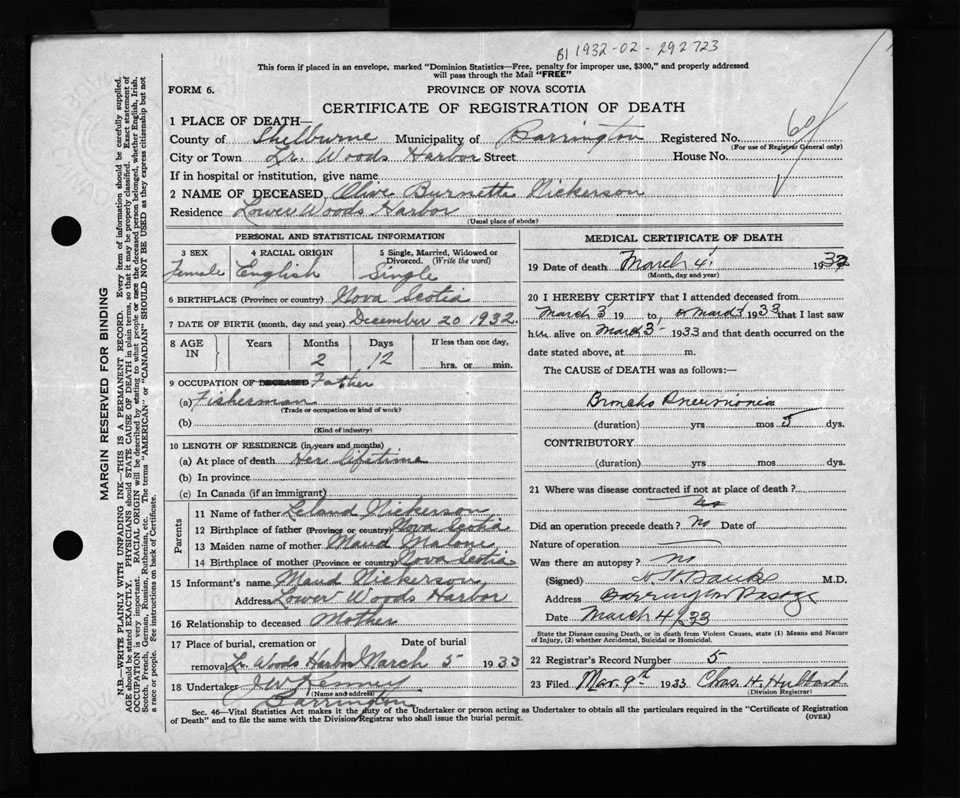 B1 1932-02-292723
This form if placed in an envelope, marked "Dominion Statistics—Free, penalty for improper use, $300," and properly addressed
will pass through the Mail "FREE"
FORM 6.
PROVINCE OF NOVA SCOTIA
CERTIFICATE OF REGISTRATION OF DEATH
1 PLACE OF DEATH—
County of Shelburne Municipality of Barrington Registered No.
(For use of Registrar General only)
City or Town Lr. Woods Harbor Street House No.
If in hospital or institution, give name
2 NAME OF DECEASED Olive Burnette Nickerson
Residence Lower Woods Harbor
(Usual place of abode)
PERSONAL AND STATISTICAL INFORMATION
3 SEX 4 RACIAL ORIGIN 5 Single, Married, Widowed or
Divorced. (Write the word)
Female English Single
6 BIRTHPLACE (Province or country) Nova Scotia
7 DATE OF BIRTH (month, day and year) December 20 1932
8 AGE IN Years Months Days If less than one day,
2 12 hrs. or min.
9 OCCUPATION OF DECEASED Father
(a) Fisherman
(Trade or occupation or kind of work)
(b)
(Kind of industry)
10 LENGTH OF RESIDENCE (in years and months)
(a) At place of death Her lifetime
(b) In province
(c) In Canada (if an immigrant)
Parents
11 Name of father Leland Nickerson
12 Birthplace of father (Province or country) Nova Scotia
13 Maiden name of mother Maud Malone
14 Birthplace of mother (Province or country) Nova Scotia
15 Informant's name Maud Nickerson
Address Lower Woods Harbor
16 Relationship to deceased Mother
17 Place of burial, cremation or Date of burial
removal Lr. Woods Harbor March 5 1933
18 Undertaker
(Name and address)
Barrington
MEDICAL CERTIFICATE OF DEATH
19 Date of death March 4 193
(Month, day and year)
20 I HEREBY CERTIFY that I attended deceased from
March 3 19 to March 3 1933 that I last saw
h alive on March 3 1933 and that death occurred on the
date stated above, at m.
The CAUSE of DEATH was as follows:—
Broncho Pneumonia
(duration) yrs mos 5 dys.
CONTRIBUTORY
(duration) yrs. mos. dys.
21 Where was disease contracted if not at place of death?
Did an operation precede death? No Date of
Nature of operation
Was there an autopsy? No
(Signed) M.D.
Address Barrington Passage
Date March 4/33
State the Disease causing Death, or in death from Violent Causes, state (1) Means and Nature
of Injury, (2) whether Accidental, Suicidal or Homicidal.
22 Registrar's Record Number 5
23 Filed Mar. 9th 1933 Chas. H. Hubbard
(Division Registrar)
Sec. 46—Vital Statistics Act makes it the duty of the Undertaker or person acting as Undertaker to obtain all the particulars required in the "Certificate of Registration
of Death" and to file the same with the Division Registrar who shall issue the burial permit.
(OVER)
MARGIN RESERVED FOR BINDING
N.B.—WRITE PLAINLY WITH UNFADING INK—THIS IS A PERMANENT RECORD. Every item of information should be carefully supplied.
AGE should be stated EXACTLY. PHYSICIANS should STATE CAUSE OF DEATH in plain terms, so that it may be properly classified. Exact statement of
OCCUPATION is very important. RACIAL ORIGIN will be described by stating to what people or race the deceased person belonged, whether English, Irish,
Scotch, French, German, Russian, Ruthenian, etc. The terms "AMERICAN" or "CANADIAN" SHOULD NOT BE USED as they express citizenship but not
a race or people. See instructions on back of Certificate.